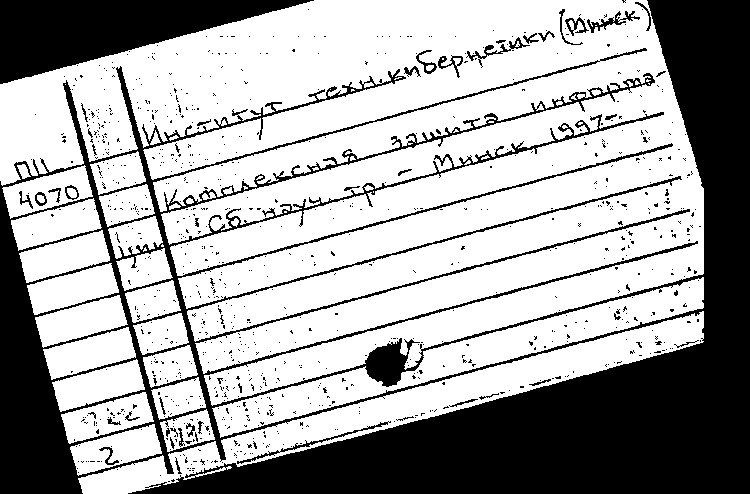 Институт техн. кибернетики (Минск)
ПП
4070
Комплексная защита информа-
ции. Сб. науч. тр. - Минск, 1997-
2